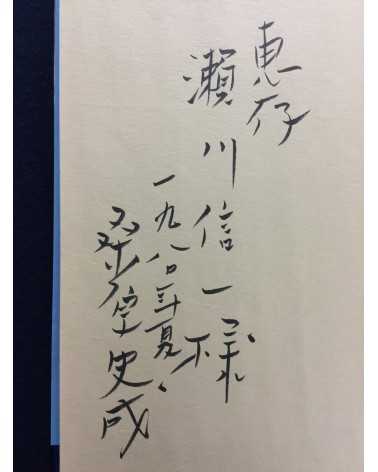 恵存
瀬川信一様
一九八〇年夏
桑原史成